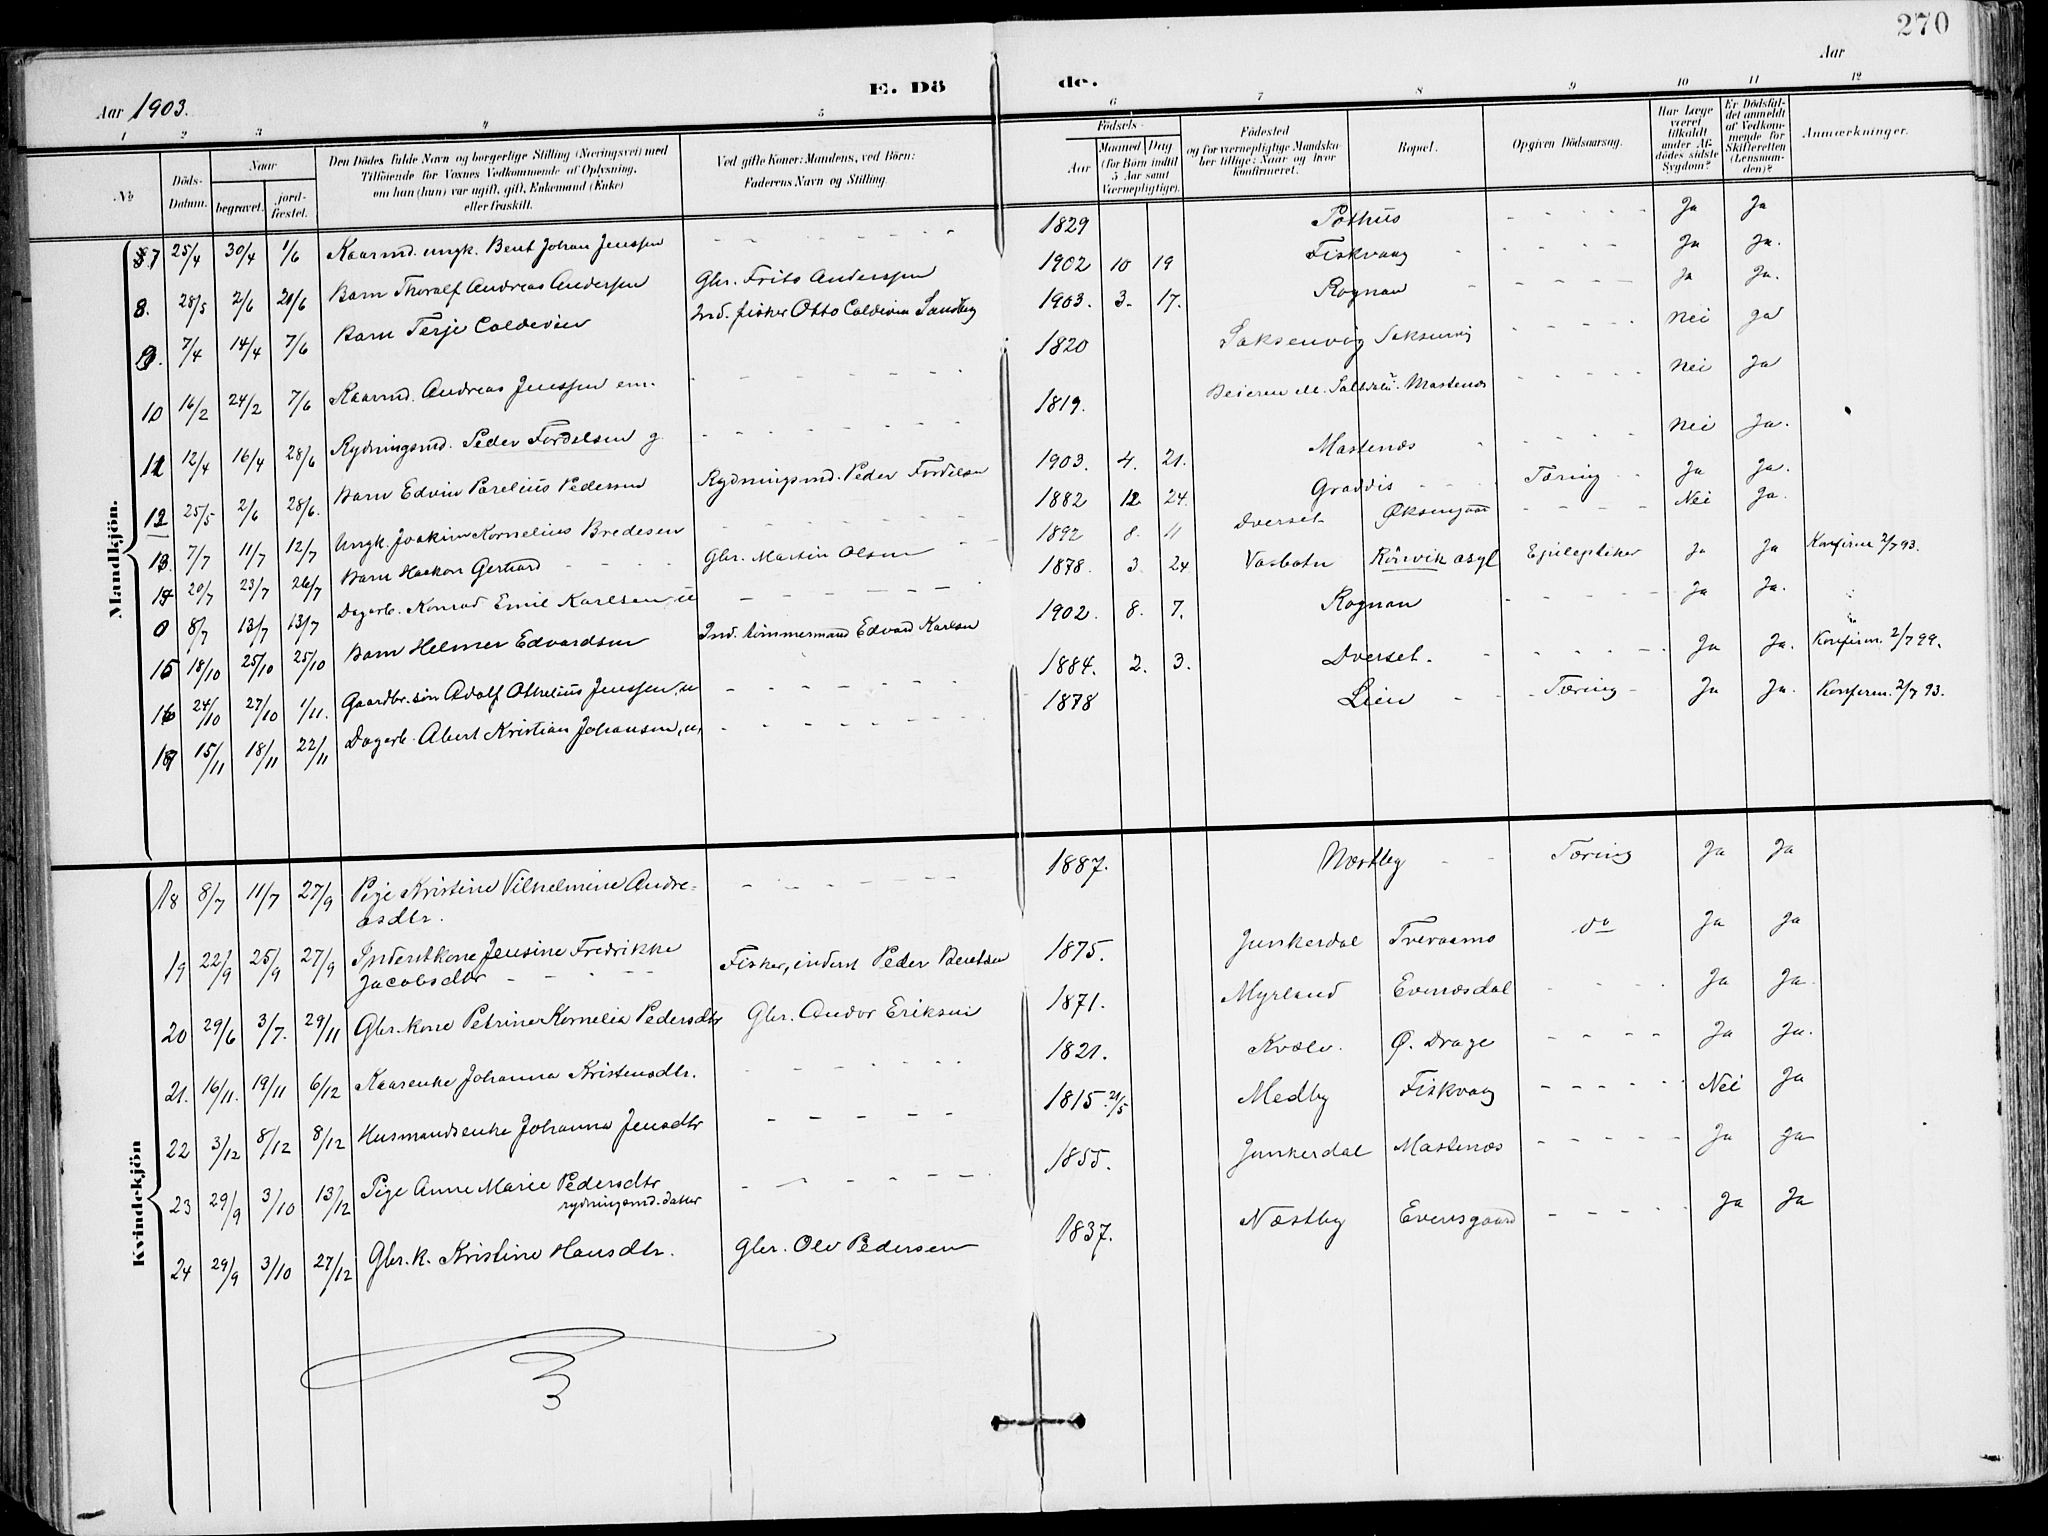 270
E. Dö de.
Aar 1903. Aar
1 2 3 4 5 6 7 8 9 10 11 12
No Döds-Datum. Naar begravet. jord-fæstet. Den Dödes fulde Navn og borgerlige Stilling (Næringsvei) med Tilföiende for Voxnes Vedkommende af Oplysning, om han (hun) var ugift, gift, Enkemand (Enke) eller fraskilt. Ved gifte Koner: Mandens, ved Börn: Faderens Navn og Stilling. Födsels- Aar Maaned Dag (for Börn indtil 5 Aar samt Værnepligtige). Födested og for værnepligtige Mandskaber tillige: Naar og hvor Konfirmeret. Bopæl. Opgiven Dödsaarsag. Har Læge været tilkaldt under Afdödes sidste Sygdom? Er Dödsfaldet anmeldt af Vedkommende for Skifteretten (Lensmanden)? Anmærkninger.
Mandkjön.
7 25/4 30/4 1/6 Kaarmd. ungk. Bent Johan Jenssen - - - 1829 Pothus - - - Ja Ja
8. 28/5 2/6 21/6 Barn Thoralf Andreas Andersen Gbr. Frits Anderssen 1902 10 19 Fiskvaag - - - Ja Ja.
9. 7/4 14/4 7/6 Barn Terje Coldevin Ind. fisker Otto Coldevin Sandberg 1903. 3. 17. Rognan - - - Ja Ja.
10 16/2 24/2 7/6 Kaarmd. Andreas Jenssen em. - - - 1820 Saksenvig Saksenvig - - - Nei Ja
11 12/4 16/4 28/6 Rydningsmd. Peder Fordelsen g. - - - 1819. Beieren Mastenæs - - - Nei Ja
12 25/5 2/6 28/6. Barn Edvin Parelius Pedersen Rydningsmd. Peder Fordelsen 1903. 4. 21. Mastenæs - - - Nei Ja.
13. 7/7 11/7 12/7 Ungk. Joakim Kornelius Bredesen - - - 1882 12 24. Graddis - - - Tæring - - Ja Ja.
14 20/7 23/7 26/7 Barn Haakon Gerhard - - - Gbr. Martin Olsen - - 1892 8. 11 Dverset Øksengaard - - - Nei Ja.
0 8/7 13/7 13/7 Dagarb. Konrad Emil Karlsen, u - - - 1878. 3. 24 Vasbotn Rönvik asyl Epileptiker Ja Ja Konfirm 2/7 93.
15 18/10 25/10 25/10 Barn Helmer Edvardsen Ind. tömmermand Edvard Karlsen 1902. 8. 7. Rognan - - - Ja Ja.
16 24/10 27/10 1/11. Gaardbr. sön Adolf Othelius Jenssen, u - - - 1884. 2. 3. Dverset. - - - Ja Ja. Konfirm. 2/7 99.
17 15/11 18/11 22/11 Dagarb. Abert Kristian Johansen, u, - - - 1878 Lien - - Tæring - Ja Ja. Konfirm. 2/7 93.
Kvindekjön
18 8/7 11/7 27/9 Pige Kristine Vilhelmine Andre- - - - 1887. Næstby - - Tæring Ja Ja
asdtr.
19 22/9 25/9 27/9 Inderstkone Jensine Fredrikke Fisker, inderst Peder Bentsen 1875. Junkerdal Tveraamo do Ja Ja
Jacobsdtr - - -
20 29/6 3/7. 29/11 Gbr. kone Petrine Kornelia Pedersdtr Gbr. Andor Eriksen 1871. Myrland Evenesdal - - - Ja Ja.
21. 16/11. 19/11 6/12 Kaarenke Johanna Kristensdtr. - - - 1821. Kvæle. Ø. Drage - - - Ja Ja.
22 3/12 8/12 8/12 Husmandsenke Johanna Jensdtr - - - 1815. 21/5 Medby Fiskvaag - - - Nei Ja
23 29/9 3/10 13/12 Pige Anne Marie Pedersdtr - - - 1855. Junkerdal Mastenæs - - - Ja Ja
rydningsmd. datter
24 29/9 3/10 27/12 Gbr. k. Kristine Hansdtr. Gbr. Ole Pedersen 1837. Næstby Evensgaard - - - Ja Ja